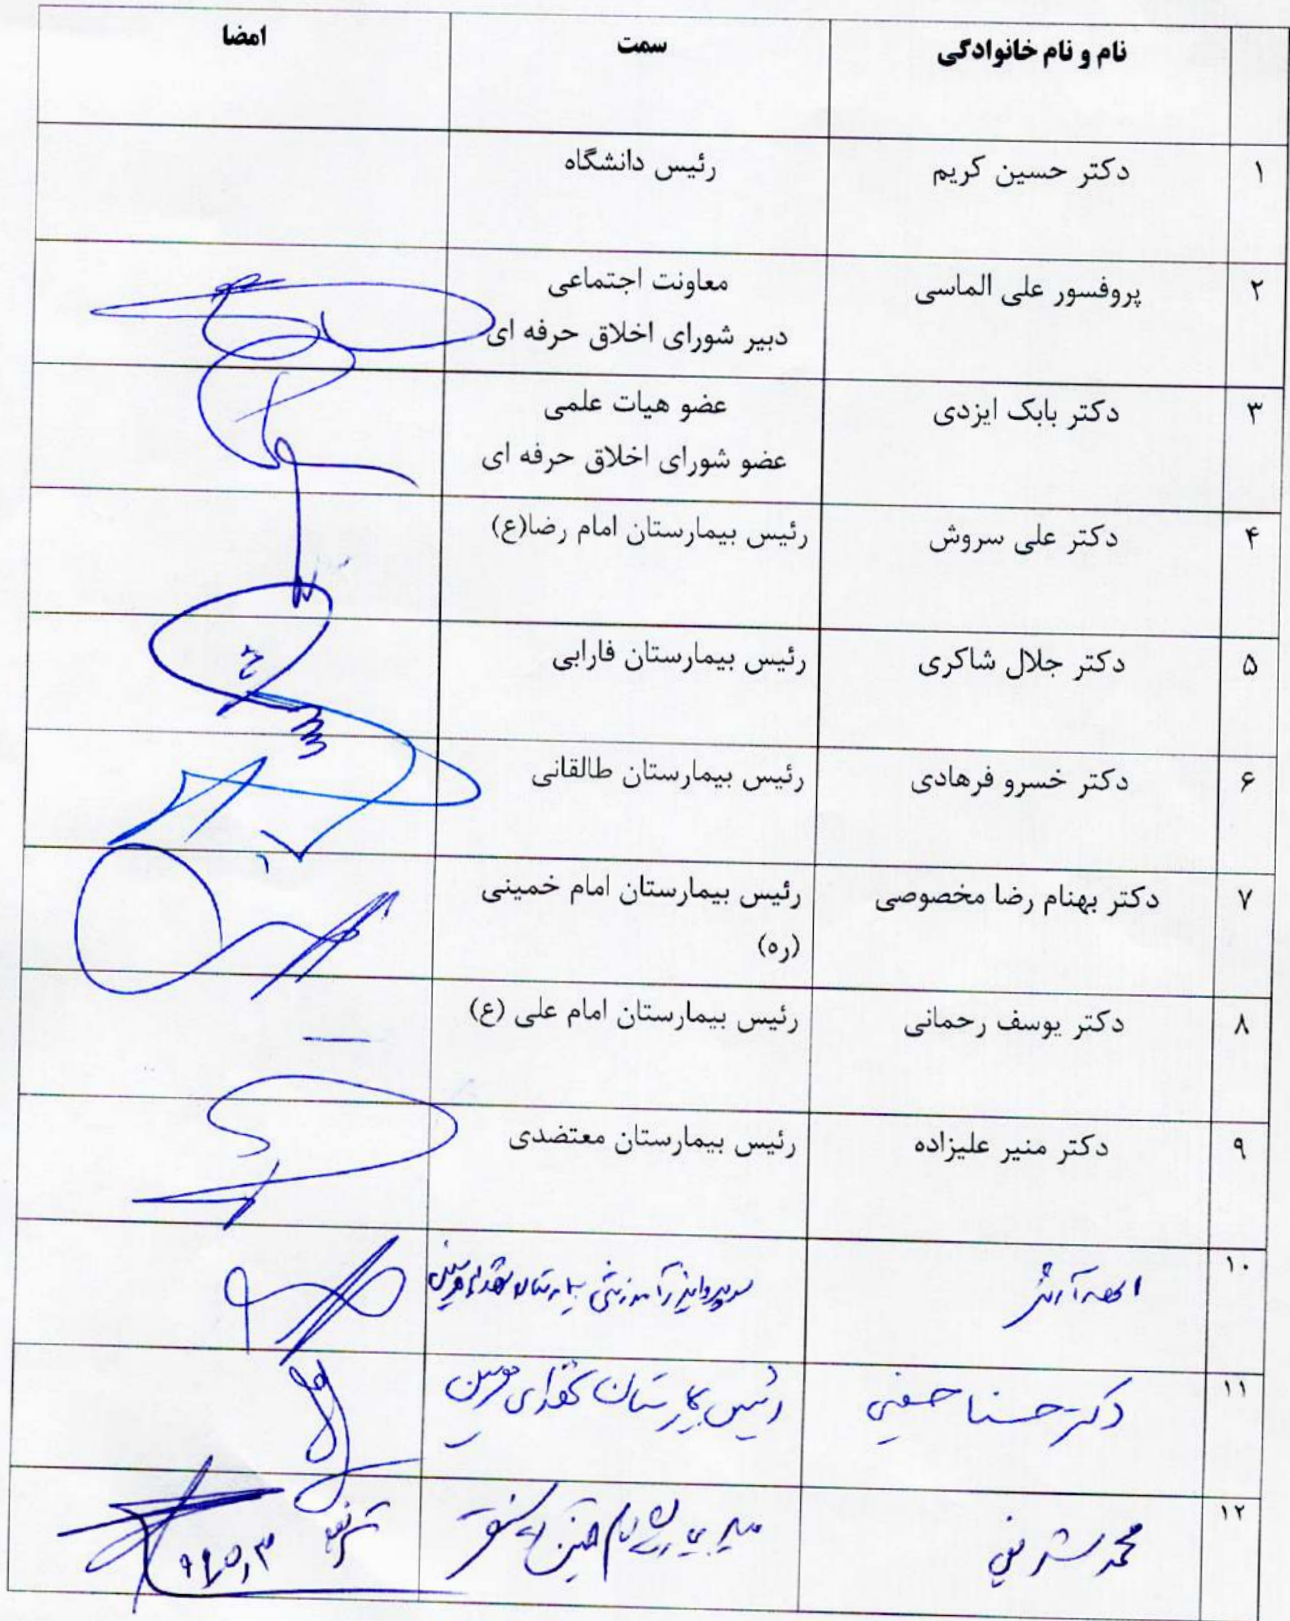 نام و نام خانوادگی سمت امضا
۱ دکتر حسین کریم رئیس دانشگاه
۲ پروفسور علی الماسی معاونت اجتماعی
دبیر شورای اخلاق حرفه ای
۳ دکتر بابک ایزدی عضو هیات علمی
عضو شورای اخلاق حرفه ای
۴ دکتر علی سروش رئیس بیمارستان امام رضا(ع)
۵ دکتر جلال شاکری رئیس بیمارستان فارابی
۶ دکتر خسرو فرهادی رئیس بیمارستان طالقانی
۷ دکتر بهنام رضا مخصوصی رئیس بیمارستان امام خمینی
(ره)
۸ دکتر یوسف رحمانی رئیس بیمارستان امام علی (ع)
۹ دکتر منیر علیزاده رئیس بیمارستان معتضدی
۱۰ سوپروایزر آموزشی بیمارستان
۱۱ دکتر رئیس بیمارستان
۱۲ محمد شریفی